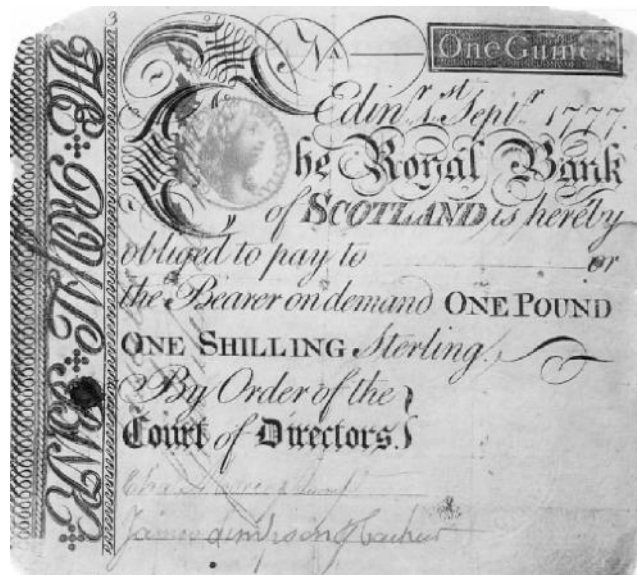 THE ROYAL BANK
3
No
One Guinea
Edinr. 1st Septr. 1777.
The Royal Bank
of SCOTLAND is hereby
obliged to pay to or
the Bearer on demand ONE POUND
ONE SHILLING Sterling.
By Order of the
Court of Directors.
James Simpson